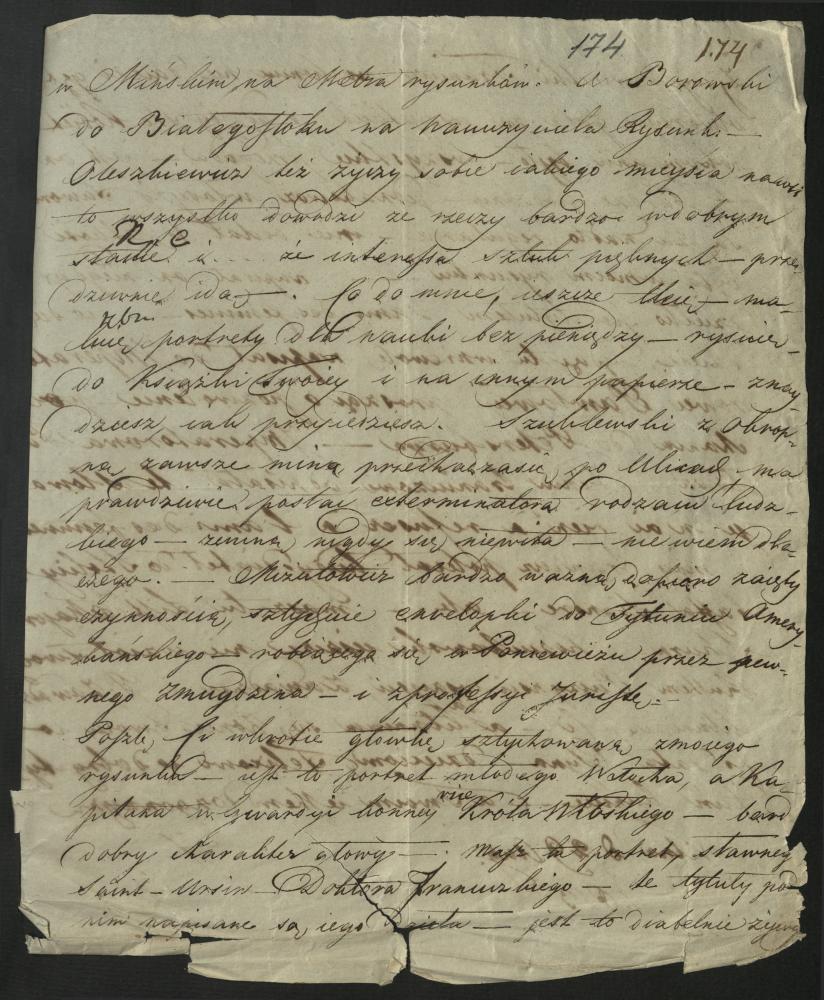 174. 174
w Mińskim na Metra rysunków. a Borowski
do Białegostoku na nauczyciela Rysunk. —
Oleszkiewicz też życzy sobie iakiego mieysca nawet
to wszystko dowodzi że rzeczy bardzo w dobrym
stanie i . . . . że interessa sztuk pięknych — prze-
dziwnie idą —. Co do mnie, ieszcze — ma-
luię portrety dla nauki bez pieniędzy — rysuię
do Książki Twoiey i na innym papierze — znay-
dziesz iak przyiedziesz. Szublewski z okrop-
ną zawsze miną przechadzaiąc się po Ulicach ma
prawdziwie postać exterminatora rodzaiu ludz-
kiego — zemną nigdy się niewita — nie wiem dla-
czego. — bardzo ważną dopiero zaięty
czynnością, sztychuie envelopki do Tytuniu Amery-
kańskiego — robiącego się w Poniewieżu przez pew-
nego Zmuydzina — i z professyi Juristę. —
Poszlę Ci wkrotce głowkę sztychowaną z moiego
rysunku — iest to portret młodego Włocha, a Ka-
pitana w Gwardyi konney vice Króla Włoskiego — bard
dobry Charakter głowy —. Masz tu portret sławnego
Saint-Ursin — Doktora Francuzkiego — te tytuły pod
nim napisane są iego Dzieła — jest to diabelnie żywy